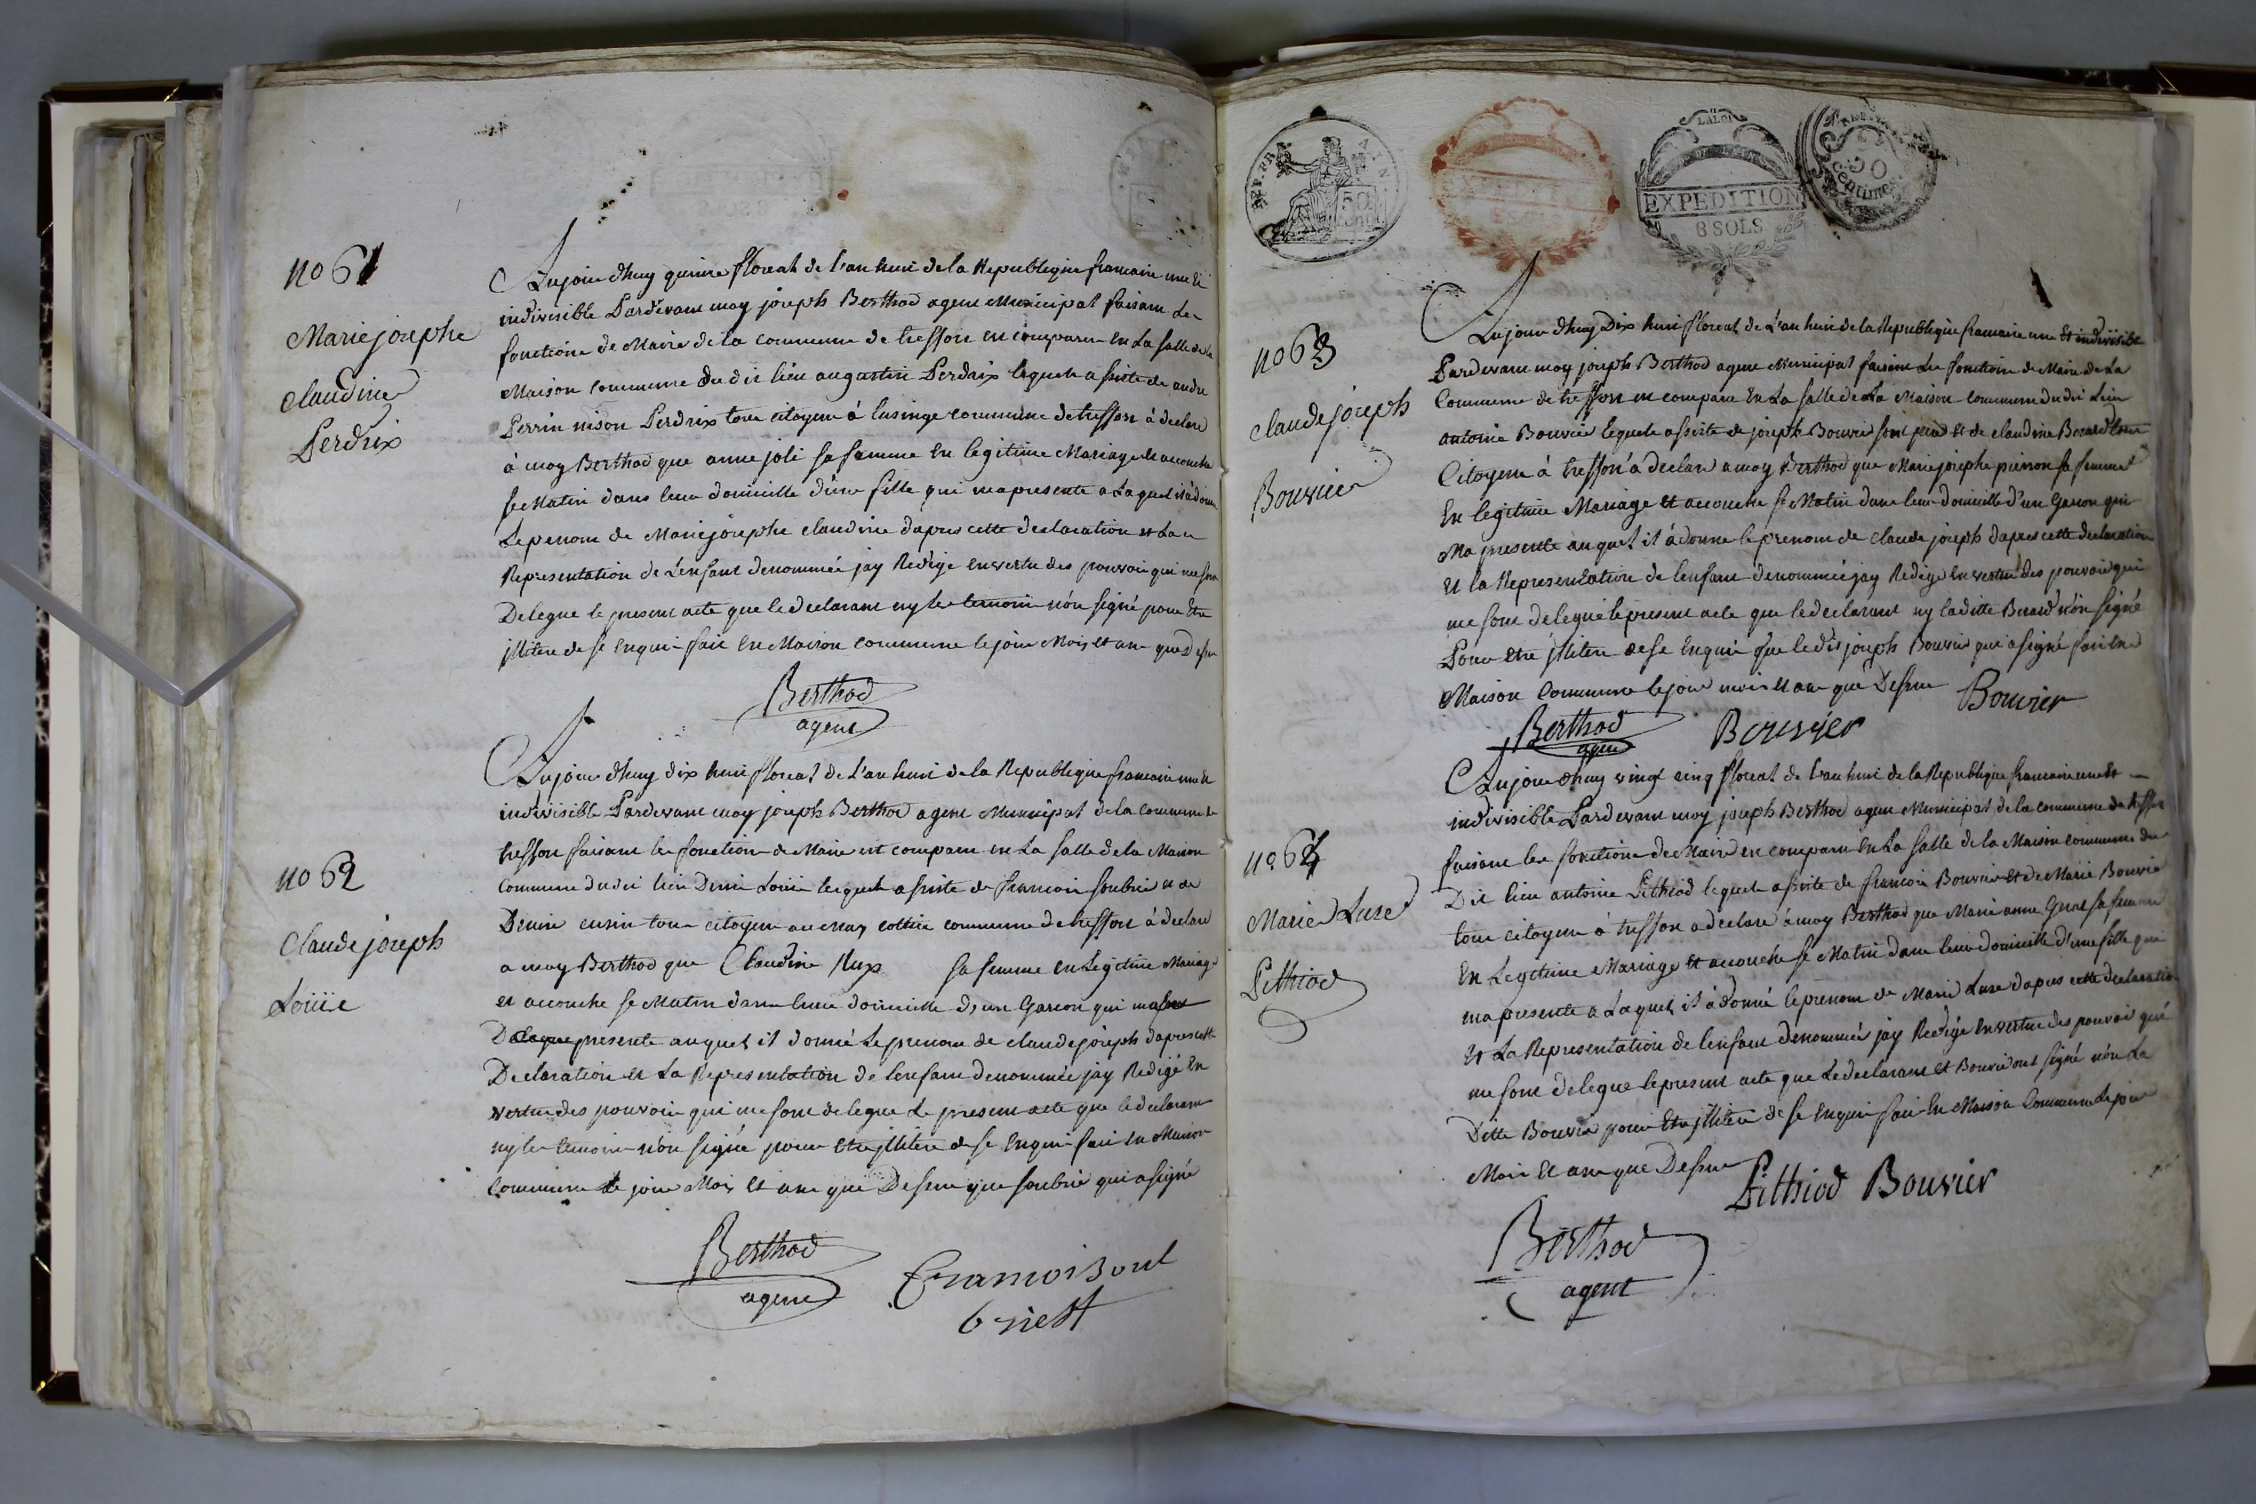 no 61
Marie josephe
Claudine
Perdrix
Aujour dhuy quinze floreal de l'an huit de la Republique francaise une et
indivisible Pardevant moy joseph Berthod agent Municipal faisant Les
fonctions de Maire de la commune de tresson en comparu en La salle de la
Maison commune du dit lieu augustin Perdrix lequel assiste de andre
Perrin nison Perdrix tous citoyens à lusinge commune de tresson à declare
à moy Berthod que anne joli sa femme en legitime Mariage et accouche
se Matin dans leur domicille d'une fille qui ma presente a Laquel il à donne
Le prenom de Marie josephe claudine dapres cette declaration et La
Representation de L'enfant denommée jay Redige en vertu des pouvoir qui me son
Delegue le present acte que le declarant ny les temoin non signé pour Etre
jllitere de se Enquis fait En Maison commune le jour Mois et an que Dessus
Berthod
agent
no 62
Claude joseph
Loüie
Aujour dhuy dix huit floreal de L'an huit de la Republique francaise une et
indivisible Pardevant moy joseph Berthod agent Municipal de la commune de
tresson faisant les fonction de Maire est comparu en La salle de la Maison
commune du dit lieu Denis Loüie lequel assiste de francois soubrie et de
Denise tous citoyen commune de tresson à declare
a moy Berthod que Claudine Rux sa femme en Legitime Mariage
et accouche se Matin dans leur domicille d'un Garcon qui ma
presente auquel il donné Le prenom de claude joseph dapres cette
Declaration et La Representation de lenfant denommée jay Redigé En
vertu des pouvoir qui me sont delegue Le present acte que le declarant
ny les temoin non signé pour Etre jllitere de se Enquis fait en Maison
commune Le jour Mois Et an que Dessus que soubrie qui a signé
Berthod
agent
francoi Soul
briest
REP. FRA.
50
CENT.
LA LOI
EXPEDITION
8 SOLS
50
Centimes
no 63
Claude joseph
Bouvier
Aujour dhuy Dix huit floreal de L'an huit de la Republique francaise une Et indivisible
Pardevant moy joseph Berthod agent Municipal faisant Les fonction de Maire de La
Commune de tresson en comparu En La salle de La Maison commune du dit Lieu
antoine Bouvier lequel assiste de joseph Bouvier son et de claudine Berard tous
Citoyens à tresson à declare a moy Berthod que Marie josephe pierron sa femme
En legitime Mariage et accouche se Matin dans leur domicille d'un Garcon qui
Ma presente auquel il à donne le prenom de claude joseph dapres cette declaration
et la Representation de lenfant denommée jay Redige En vertu des pouvoir qui
me sont delegué le present acte que le declarant ny la ditte Berard non signé
Pour etre jllitere de se Enquis que le dit joseph Bouvier qui a signé fait En
Maison Commune le jour mois et an que Dessus
Bouvier
Berthod
agent
Bouvier
no 64
Marie Luse
Pethiod
Aujour dhuy vingt cinq floreal de l'an huit de la Republique francaise une Et
indivisible Pardevant moy joseph Berthod agent Municipal de la commune de tresson
faisant les fonction de Maire en comparu En La salle de la Maison commune du
Dit lieu antoine Pethiod lequel assiste de francois Bouvier et de Marie Bouvier
tous citoyen à tresson a declare à moy Berthod que Marie anne Gros sa femme
En Legitime Mariage et accouche se Matin dans leur domicille d'une fille qui
ma presente a Laquel il à donné le prenom de Marie Luse dapres cette declaration
Et La Representation de lenfant denommée jay Redigé En vertu des pouvoir qui
me sont delegue le present acte que Le declarant et Bouvier ont signé non La
Ditte Bouvier pour Etre jllitere de se Enquis fait En Maison Commune Le jour
Mois Et an que Dessus
Pethiod Bouvier
Berthod
agent